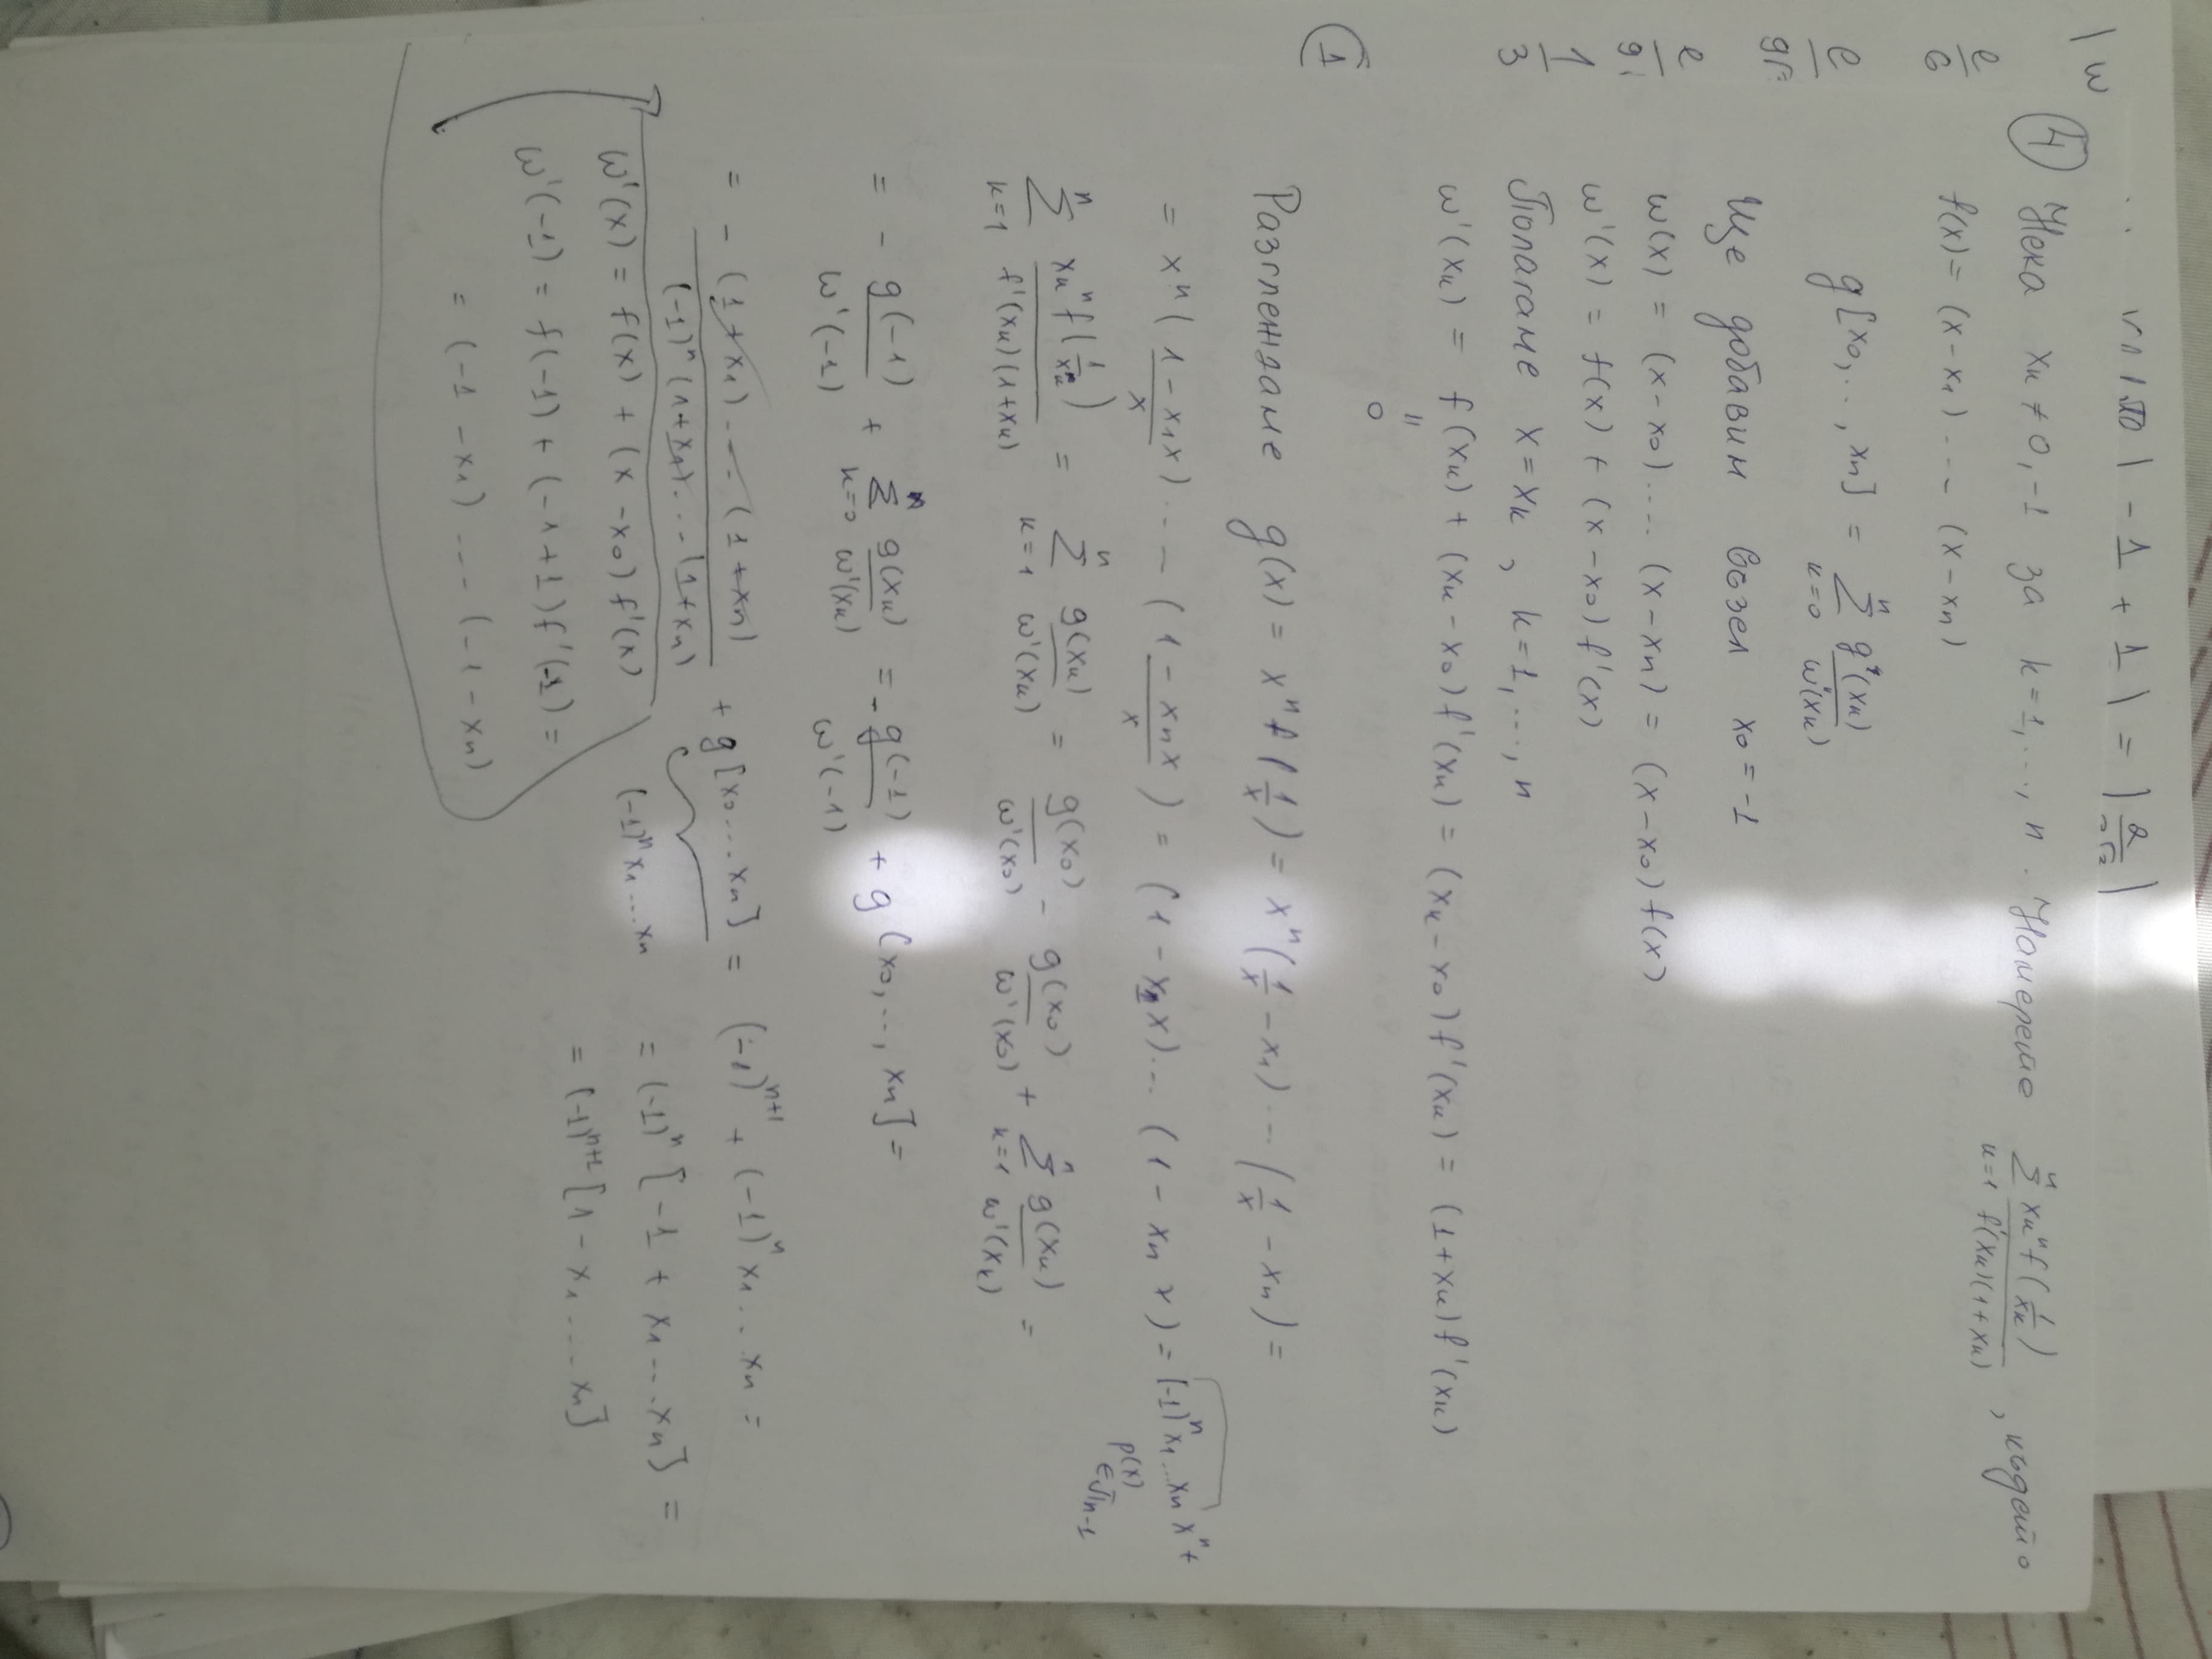 | - 1 + 1 | = | 2/2√2 |
| ω
④ Нека xₖ ≠ 0, -1 за k = 1, ..., n. Намерете ∑_{k=1}^{n} xₖⁿ f(1/xₖ) / f'(xₖ)(1+xₖ), където
f(x) = (x - x₁) .... (x - xₙ)
e/6
g[x₀, .., xₙ] = ∑_{k=0}^{n} g(xₖ) / ω'(xₖ)
e
Ще добавим възел x₀ = -1
ω(x) = (x - x₀) .... (x - xₙ) = (x - x₀) f(x)
e/9
ω'(x) = f(x) + (x - x₀) f'(x)
1/3
Полагаме x = xₖ, k = 1, ..., n
ω'(xₖ) = f(xₖ) + (xₖ - x₀) f'(xₖ) = (xₖ - x₀) f'(xₖ) = (1 + xₖ) f'(xₖ)
"
0
①
Разглеждаме g(x) = xⁿ f(1/x) = xⁿ (1/x - x₁) ... (1/x - xₙ) =
= xⁿ ((1 - x₁x)/x) .... ((1 - xₙx)/x) = (1 - x₁x) ... (1 - xₙx) = (-1)ⁿ x₁...xₙ xⁿ +
p(x)
∈ πₙ₋₁
∑_{k=1}^{n} xₖⁿ f(1/xₖ) / f'(xₖ)(1+xₖ) = ∑_{k=1}^{n} g(xₖ)/ω'(xₖ) = g(x₀)/ω'(x₀) - g(x₀)/ω'(x₀) + ∑_{k=1}^{n} g(xₖ)/ω'(xₖ) =
= - g(-1)/ω'(-1) + ∑_{k=0}^{n} g(xₖ)/ω'(xₖ) = - g(-1)/ω'(-1) + g[x₀, .., xₙ] =
= - (1+x₁) .... (1+xₙ) / (-1)ⁿ (1+x₁) .... (1+xₙ) + g[x₀...xₙ] = (-1)ⁿ⁺¹ + (-1)ⁿ x₁...xₙ =
(-1)ⁿ x₁....xₙ
= (-1)ⁿ [-1 + x₁....xₙ] =
= (-1)ⁿ⁺¹ [1 - x₁....xₙ]
ω'(x) = f(x) + (x - x₀) f'(x)
ω'(-1) = f(-1) + (-1+1) f'(-1) =
= (-1 - x₁) .... (-1 - xₙ)